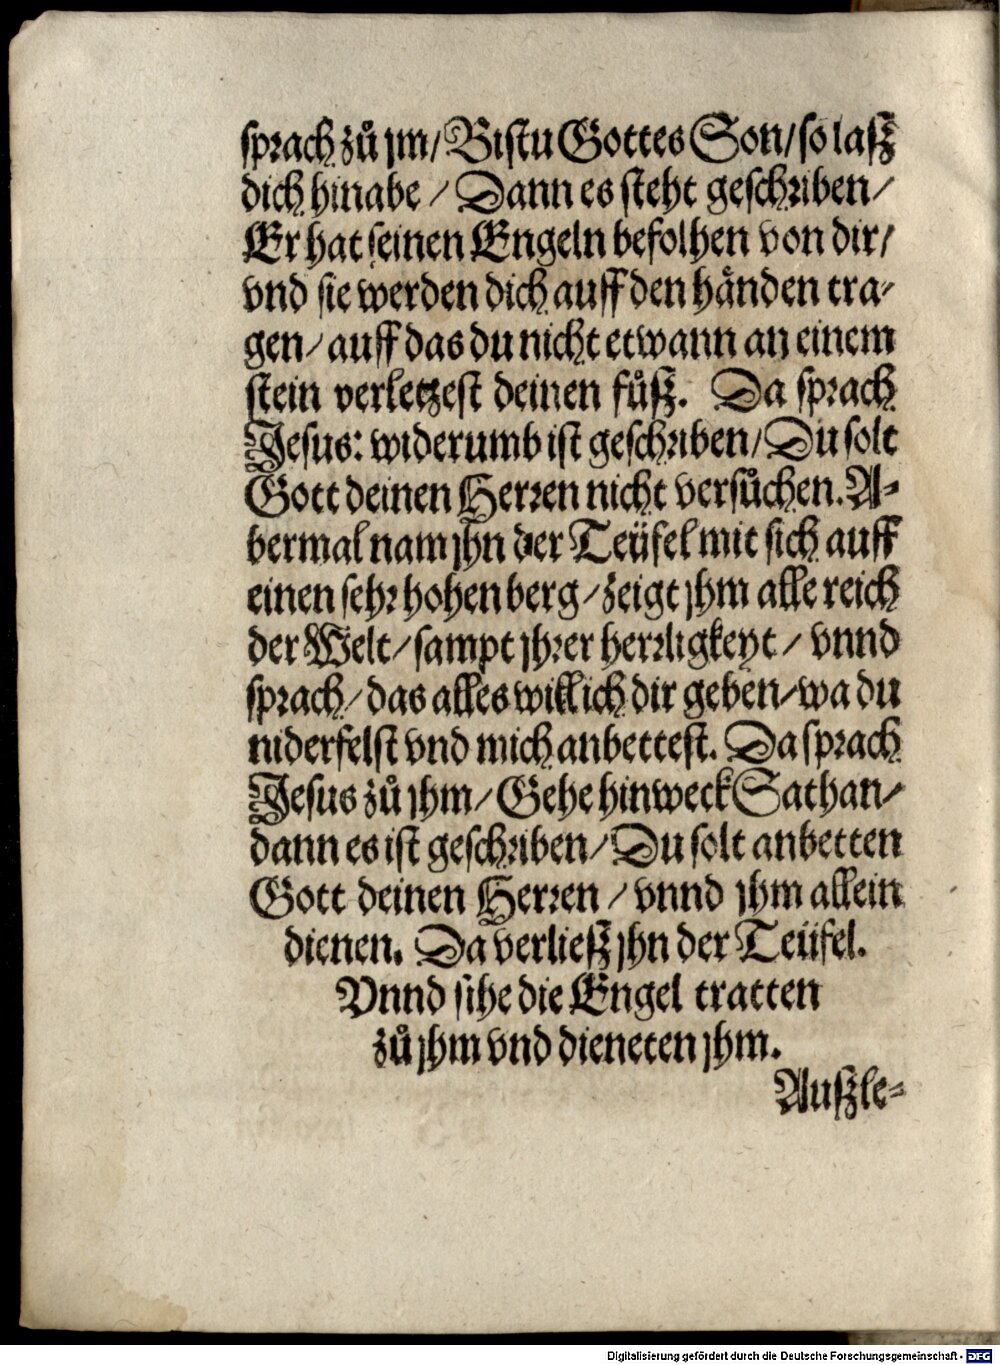 sprach zů jm/ Bistu Gottes Son/ so lasz
dich hinabe / Dann es steht geschriben/
Er hat seinen Engeln befolhen von dir/
vnd sie werden dich auff den händen tra-
gen/ auff das du nicht etwann an einem
stein verletzest deinen fůsz. Da sprach
Jesus: widerumb ist geschriben/ Du solt
Gott deinen Herren nicht versůchen. A-
bermal nam jhn der Teüfel mit sich auff
einen sehr hohen berg/ zeigt jhm alle reich
der Welt/ sampt jhrer herrligkeyt / vnnd
sprach/ das alles will ich dir geben/ wa du
niderfelst vnd mich anbettest. Da sprach
Jesus zů jhm/ Gehe hinweck Sathan/
dann es ist geschriben/ Du solt anbetten
Gott deinen Herren / vnnd jhm allein
dienen. Da verliesz jhn der Teüfel.
Vnnd sihe die Engel tratten
zů jhm vnd dieneten jhm.
Auszle-
Digitalisierung gefördert durch die Deutsche Forschungsgemeinschaft - DFG